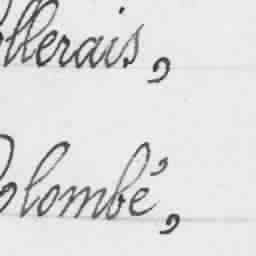 ollerais,
Colombé,